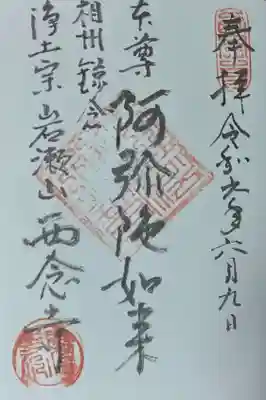 奉拝 令和五年六月九日
本尊 阿弥陀如来
相州鎌倉
浄土宗 岩瀬山 西念寺